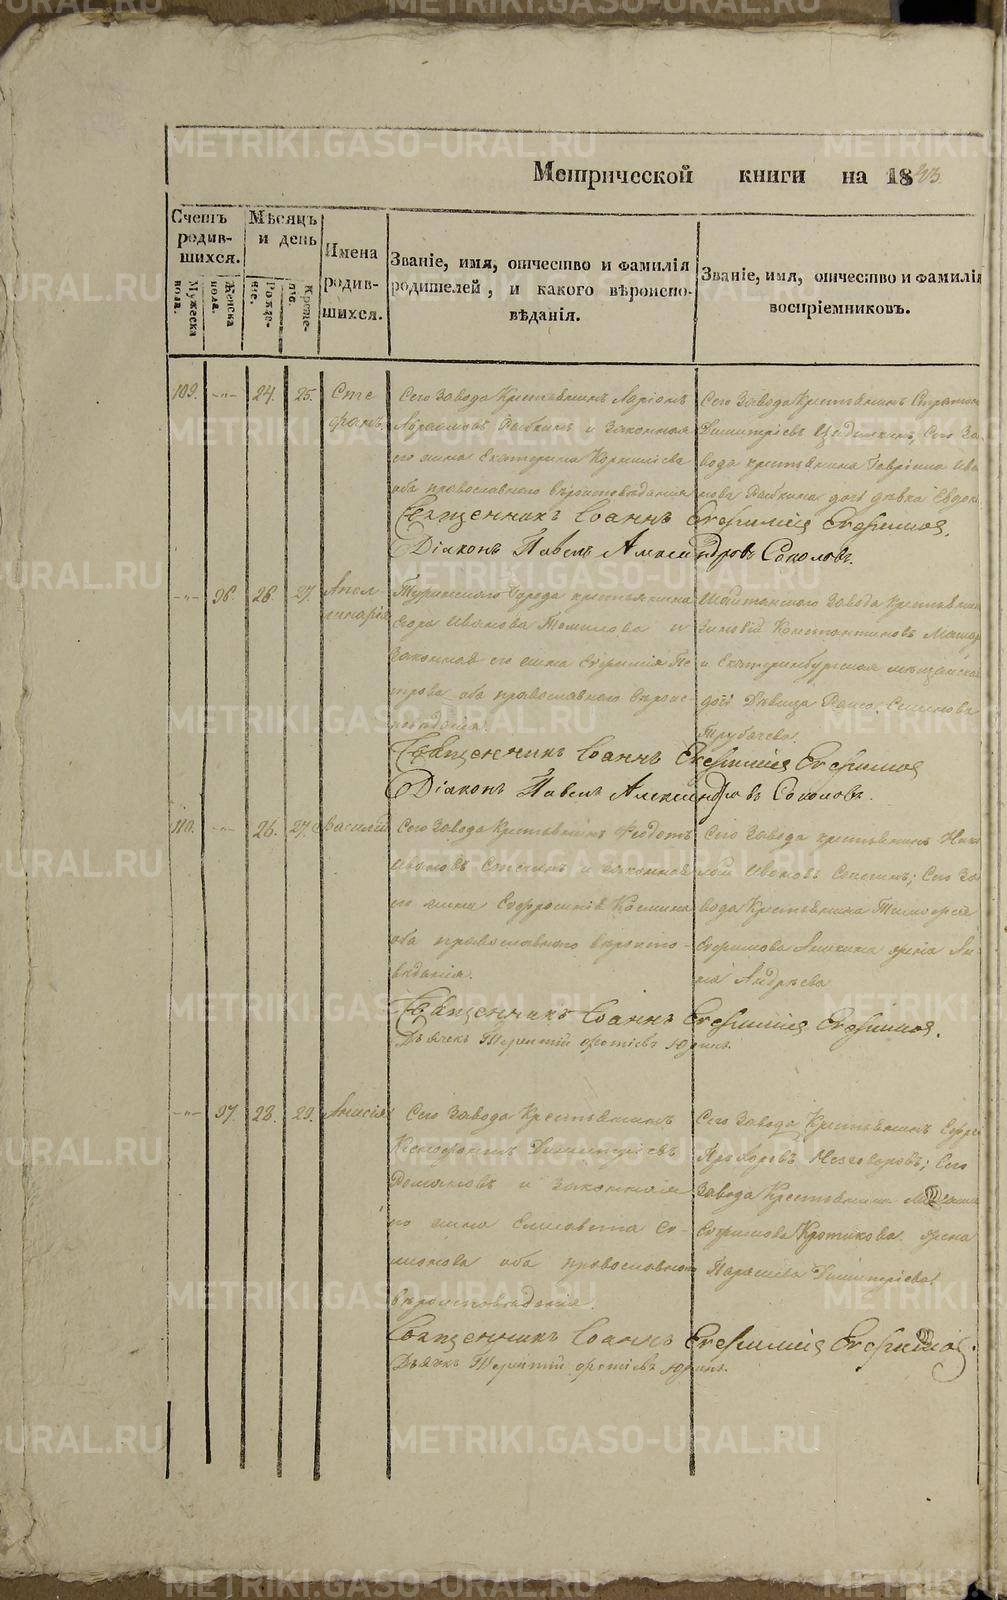 Метрической книги на 1843.
Счетъ родив-шихся.
Мужеска пола.
Женска пола.
Мѣсяцъ и день
Рожде-ніе.
Креще-ніе.
Имена родив-шихся.
Званіе, имя, отчество и фамилія
родителей, и какого вѣроиспо-
вѣданія.
Званіе, имя, отчество и фамилія
воспріемниковъ.
109. -"- 24. 25. Сте
фанъ.
Сего Завода Крестьянинъ Ларіонъ
и Законная
его жена Екатерина Корниліева
оба православнаго вѣроисповѣданія
Сего Завода Крестьянинъ
Димитріевъ Сего За-
вода крестьянина Гавріила Ива
нова дочь дѣвка Евдок
Священникъ Іоаннъ Ефимиевъ Ефимовъ.
Діаконъ Павелъ Александровъ Соколовъ.
-"- 96. 26. 27. Апол
линарія
Туринскаго Города крестьянина
Ивановъ и
Законная его жена Евфимія Пе
трова оба православнаго вѣроис-
повѣданія.
Шайтанскаго Завода Крестьянин
Зиновій Константиновъ
и Екатеринбургская мѣщанская
дочь Дѣвица Семенова
Трубачева.
Священникъ Іоаннъ Ефимиевъ Ефимовъ
Діаконъ Павелъ Александровъ Соколовъ.
110. -"- 26. 27. Василій
Сего Завода Крестьянинъ Феодотъ
Ивановъ и Законная
его жена Евфросинія Космина
оба православнаго вѣроиспо-
вѣданія.
Сего Завода крестьянинъ Нико
лай Ивановъ Сего За
вода Крестьянина Тимофея
Ефимова жена Ан
на Андрѣева
Священникъ Іоаннъ Ефимиевъ Ефимовъ.
Дьячекъ Терентій Фотіевъ Юринъ.
-"- 97. 28. 29. Анисія
Сего Завода Крестьянинъ
Ксенофонтъ Димитріевъ
и Законная
его жена Елисавета Се
менова оба православнаго
вѣроисповѣданія.
Сего Завода Крестьянинъ
Прохоровъ Незговоровъ; Сего
Завода Крестьянина
Ефимова Кротикова жена
Параскева Димитріева
Священникъ Іоаннъ Ефимиевъ Ефимовъ.
Дьячекъ Терентій Фотіевъ Юринъ.
METRIKI.GASO-URAL.RU